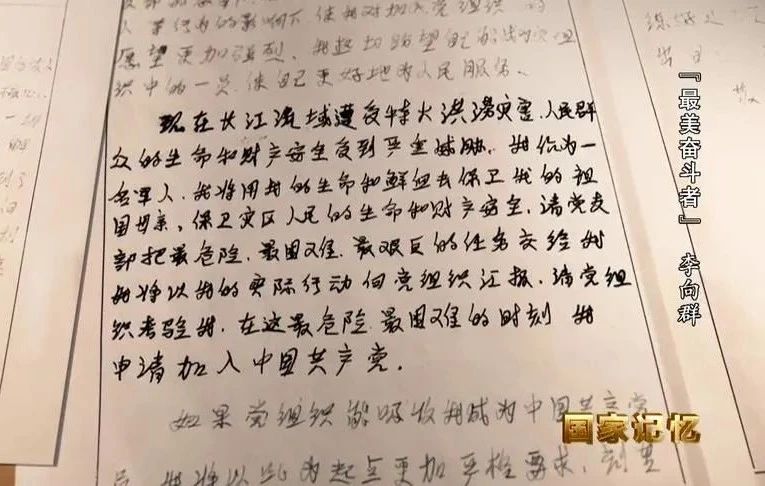 愿望更加强烈。我迫切盼望自己能成为党组
织中的一员,使自己更好地为人民服务。
现在长江流域遭受特大洪涝灾害,人民群
众的生命和财产安全受到严重威胁,我作为一
名军人,我将用我的生命和鲜血去保卫我的祖
国母亲,保卫灾区人民的生命和财产安全,请党支
部把最危险、最困难、最艰巨的任务交给我
我将以我的实际行动向党组织汇报,请党组
织考验我,在这最危险 最困难的时刻 我
申请加入中国共产党。
如果党组织能吸收我成为中国共产党
员 我将以此为起点更加严格要求,
『最美奋斗者』 李向群
国家记忆